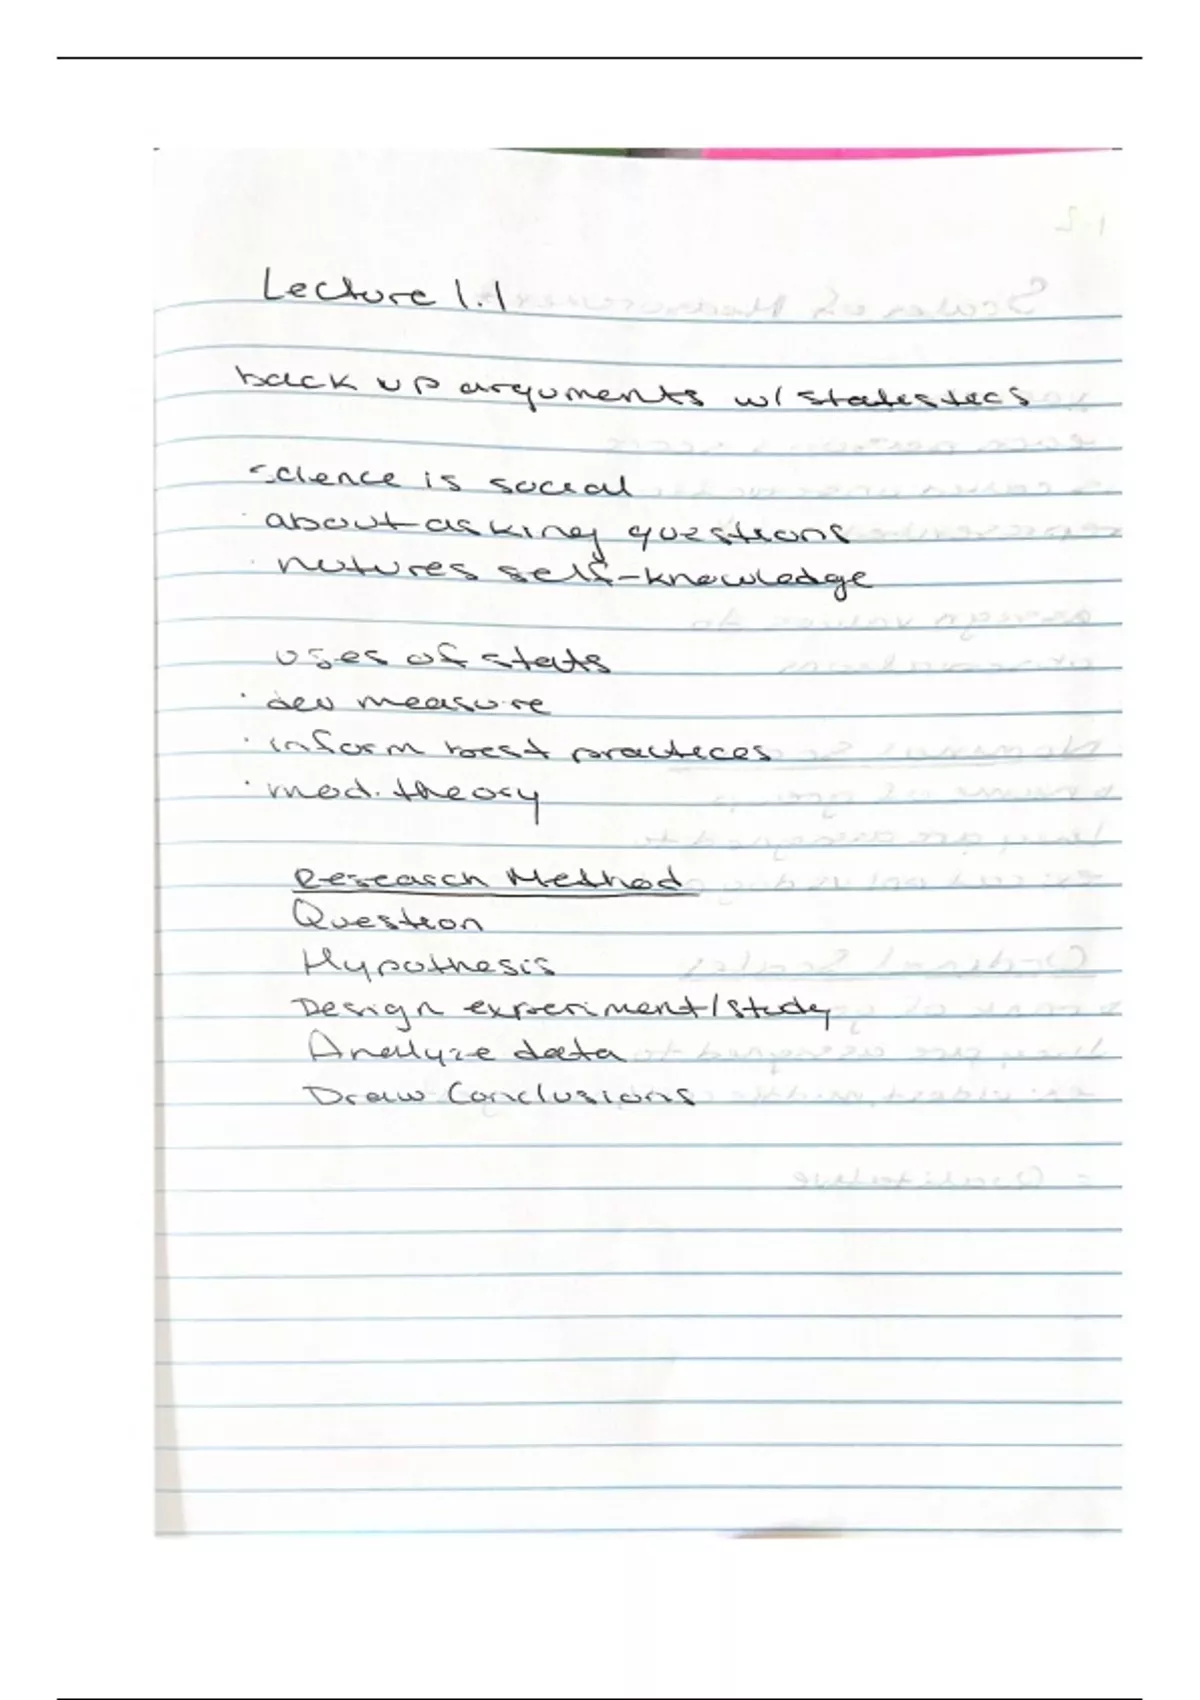 Lecture 1.1
back up arguments w/ statistics
science is social
· about asking questions
· nutures self-knowledge
uses of stats
· dev measure
· inform best practices
· mod. theory
Research Method
Question
Hypothesis
Design experiment/study
Analyze data
Draw Conclusions